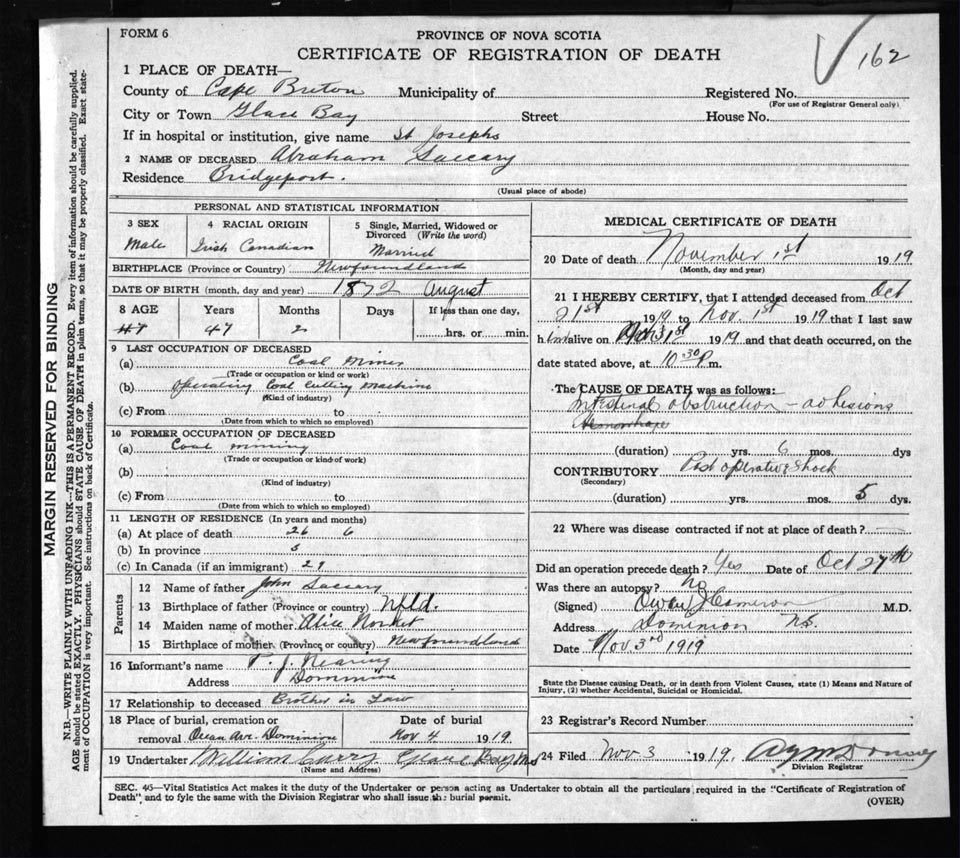 FORM 6
PROVINCE OF NOVA SCOTIA
CERTIFICATE OF REGISTRATION OF DEATH
162
1 PLACE OF DEATH—
County of Cape Breton Municipality of Registered No.
(For use of Registrar General only)
City or Town Glace Bay Street House No.
If in hospital or institution, give name St Josephs
2 NAME OF DECEASED Abraham Saccary
Residence Bridgeport.
(Usual place of abode)
PERSONAL AND STATISTICAL INFORMATION
3 SEX 4 RACIAL ORIGIN 5 Single, Married, Widowed or Divorced (Write the word)
Male Irish Canadian Married
BIRTHPLACE (Province or Country) Newfoundland
DATE OF BIRTH (month, day and year) 1872 August
8 AGE Years Months Days If less than one day,
47 47 2 hrs. or min.
9 LAST OCCUPATION OF DECEASED
(a) Coal Miner
(Trade or occupation or kind or work)
(b) Operating Coal Cutting Machine
(Kind of industry)
(c) From to
(Date from which to which so employed)
10 FORMER OCCUPATION OF DECEASED
(a) Coal mining
(Trade or occupation or kind of work)
(b)
(Kind of industry)
(c) From to
(Date from which to which so employed)
11 LENGTH OF RESIDENCE (In years and months)
(a) At place of death 26 6
(b) In province
(c) In Canada (if an immigrant) 29
Parents
12 Name of father John Saccary
13 Birthplace of father (Province or country) Nfld.
14 Maiden name of mother Alice
15 Birthplace of mother (Province or country) Newfoundland
16 Informant's name P. J. Nearing
Address Dominion
17 Relationship to deceased Brother in Law
18 Place of burial, cremation or removal Ocean Ave. Dominion
Date of burial Nov 4 1919
19 Undertaker William Curry Glace Bay
(Name and Address)
MEDICAL CERTIFICATE OF DEATH
20 Date of death November 1st 1919
(Month, day and year)
21 I HEREBY CERTIFY, that I attended deceased from Oct
21st 1919 to Nov 1st 1919 that I last saw
him alive on 1st 1919 and that death occurred, on the
date stated above, at 10 30 P. m.
The CAUSE OF DEATH was as follows:
Intestinal obstruction - adhesions
Hemorrhage
(duration) yrs. 6 mos. dys
CONTRIBUTORY Post operative shock
(Secondary)
(duration) yrs. mos. 5 dys.
22 Where was disease contracted if not at place of death?
Did an operation precede death? Yes Date of Oct 27th
Was there an autopsy? No
(Signed) Owen J Cameron M.D.
Address Dominion N.S.
Date Nov 3rd 1919
State the Disease causing Death, or in death from Violent Causes, state (1) Means and Nature of
Injury, (2) whether Accidental, Suicidal or Homicidal.
23 Registrar's Record Number
24 Filed Nov 3 1919.
Division Registrar
SEC. 46—Vital Statistics Act makes it the duty of the Undertaker or person acting as Undertaker to obtain all the particulars required in the "Certificate of Registration of
Death", and to fyle the same with the Division Registrar who shall issue the burial permit.
(OVER)
MARGIN RESERVED FOR BINDING
N.B.—WRITE PLAINLY WITH UNFADING INK—THIS IS A PERMANENT RECORD. Every item of information should be carefully supplied.
AGE should be stated EXACTLY. PHYSICIANS should STATE CAUSE OF DEATH in plain terms, so that it may be properly classified. Exact state-
ment of OCCUPATION is very important. See instructions on back of Certificate.